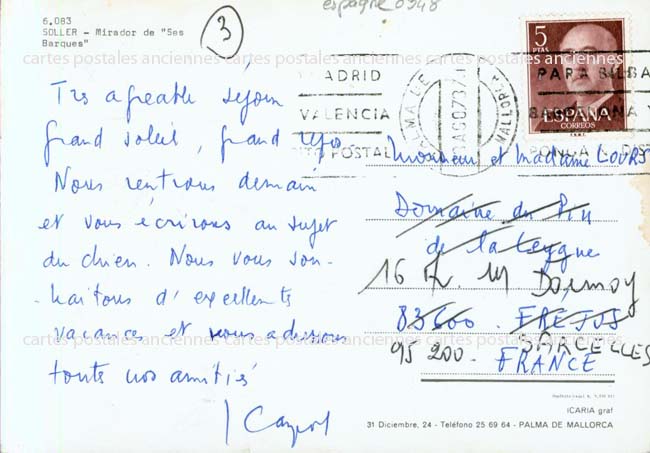 espagne 0948
6.083
SOLLER - Mirador de "Ses
Barques"
3
cartes postales anciennes cartes postales anciennes cartes postales anciennes
Très agréable séjour
grand soleil, grand repos.
Nous rentrons demain
et vous écrirons au sujet
du chien. Nous vous sou-
-haitons d'excellentes
vacances et vous adressons
toutes nos amitiés
5
PTAS
ESPAÑA
CORREOS
F.N.M.T.
MADRID
VALENCIA
POSTAL
PALMA DE MALLORCA
AGO 73
PARA BILBA
BARCELONA Y
PONGA
Monsieur et Madame LOURS
Domaine du Pin
de la Leygue
16 Av. M Dormoy
83600. FREJUS
95 200. SARCELLES
FRANCE
cartes postales anciennes cartes postales anciennes cartes postales anciennes
ICARIA graf
31 Diciembre, 24 - Teléfono 25 69 64 - PALMA DE MALLORCA